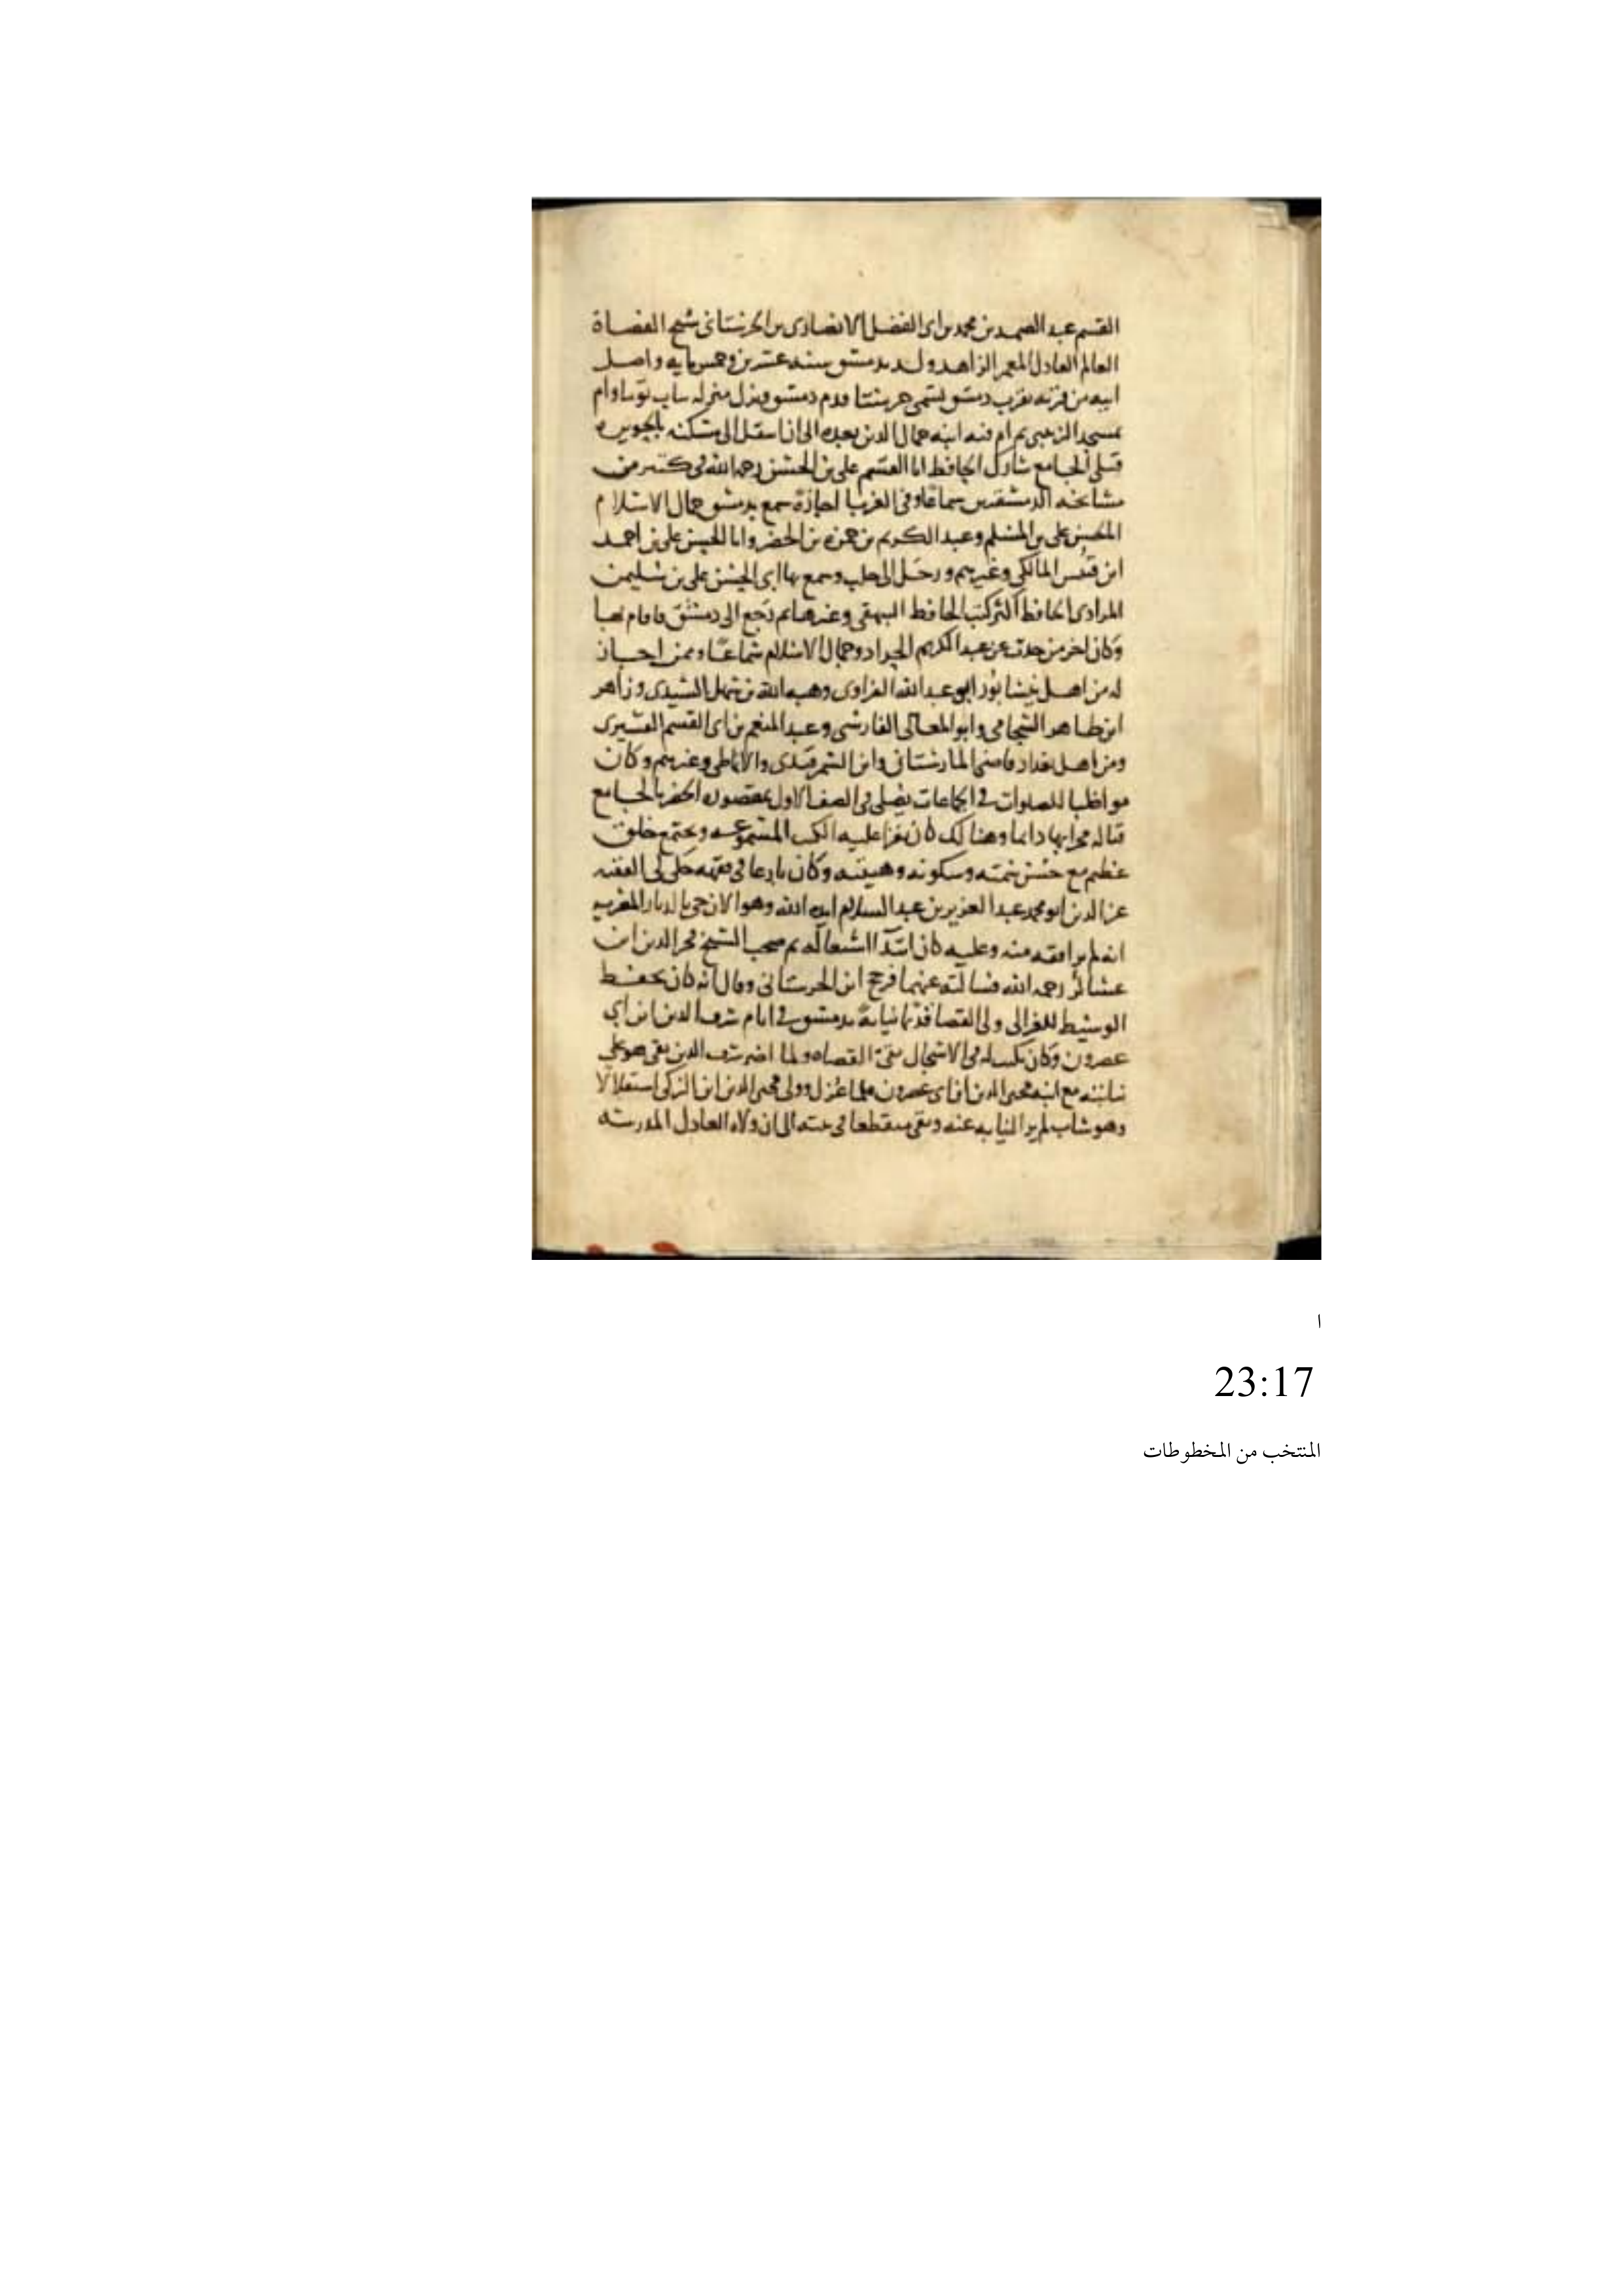 القسم عبد الصمد بن محمد بن ابى الفضل الانصارى بن الحرستانى شيخ القضاة
العالم العادل المعمر الزاهد ولد بدمشق سنه عشرين وخمس مايه واصل
ابيه من قريه بقرب دمشق تسمى حرستا قدم دمشق ونزل منزله بباب توما وام
بمسجد الزينبى ثم ام فيه ابنه جمال الدين بعده الى ان انتقل الى سكنه بالحويره
قبلى الجامع شارك الحافظ ابا القسم على بن الحسن رحمه الله فى كثير من
مشايخه الدمشقيين سماعا وفى الغربا اجازة سمع بدمشق جمال الاسلام
على بن المسلم وعبد الكريم بن حمزه بن الخضر وابا الحسن على بن احمد
ابن قبيس المالكى وغيرهم ورحل الى حلب وسمع بها ابى الحسن على بن سليمن
المرادى الحافظ اكثر كتب الحافظ البيهقى وغيرها ثم رجع الى دمشق فاقام بها
وكان اخر من حدث عن عبد الكريم الحداد وجمال الاسلام سماعا وممن اجاز
له من اهل نيسابور ابو عبد الله الفراوى وهبه الله بن سهل السيدى وزاهر
ابن طاهر الشحامى وابو المعالى الفارسى وعبد المنعم بن ابى القسم القشيرى
ومن اهل بغداد قاضى المارستانى وابن السمرقندى والانماطى وغيرهم وكان
مواظبا للصلوات فى الجماعات يصلى فى الصف الاول بمقصوره الخضر بالجامع
قباله محرابها دايما وهنالك كان يقرا عليه الكتب المسموعه ويجتمع خلق
عظيم مع حسن سمته وسكونه وهيبته وكان بارعا فى فقهه حكى لى الفقيه
عز الدين ابو محمد عبد العزيز بن عبد السلام ايده الله وهو الان حى بالديار
انه لم ير افقه منه وعليه كان ابتدا اشتغاله ثم صحب الشيخ فخر الدين ابن
عساكر رحمه الله فسالته عنهما فرجح ابن الحرستانى وقال انه كان يحفظ
الوسيط للغزالى ولى القضا قديما نيابة بدمشق فى ايام شرف الدين ابن ابى
عصرون وكان يكتب له فى الاسجال بقية القضاه ولما اضر شرف الدين بقى هو على
نيابته مع ابنه محيى الدين ابن ابى عصرون فلما عزل وولى محيى الدين ابن الزكى استقلالا
وهو شاب لم ير النيابه عنه وبقى منقطعا فى بيته الى ان ولاه العادل المدرسه
ا
23:17
المنتخب من المخطوطات